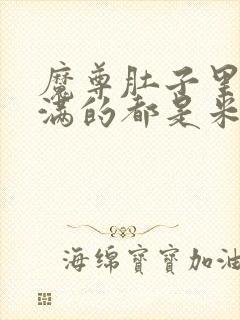 魔尊肚子里
满的都是米
海绵寶寶加油